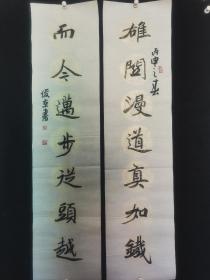 雄關漫道真如鐵
丙申之春
而今邁步從頭越